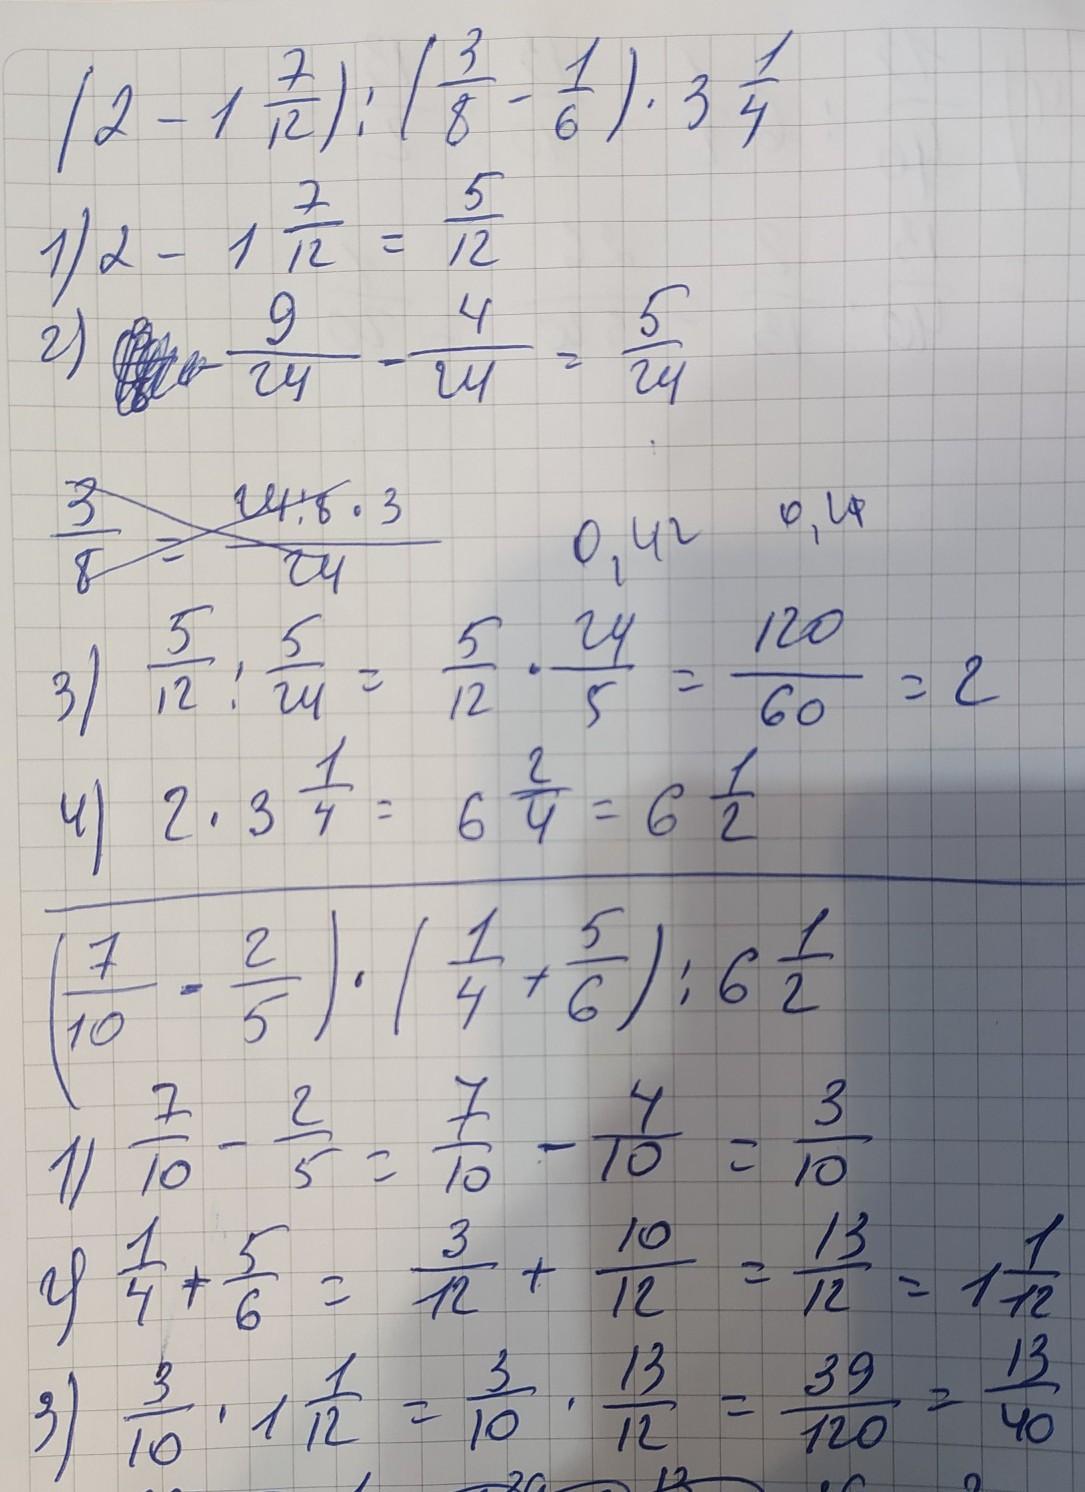 (2 - 1 7/12) : (3/8 - 1/6) · 3 1/4
1) 2 - 1 7/12 = 5/12
2) 9/24 - 4/24 = 5/24
3/8 = 24:8·3/24
0,42
3) 5/12 : 5/24 = 5/12 · 24/5 = 120/60 = 2
4) 2 · 3 1/4 = 6 2/4 = 6 1/2
(7/10 - 2/5) · (1/4 + 5/6) : 6 1/2
1) 7/10 - 2/5 = 7/10 - 4/10 = 3/10
2) 1/4 + 5/6 = 3/12 + 10/12 = 13/12 = 1 1/12
3) 3/10 · 1 1/12 = 3/10 · 13/12 = 39/120 = 13/40